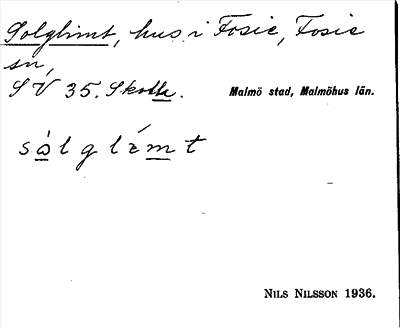 Solglimt, hus i Fosie, Fosie
sn,
SV 35. Skotte.
Malmö stad, Malmöhus län.
sòlglímt
NILS NILSSON 1936.